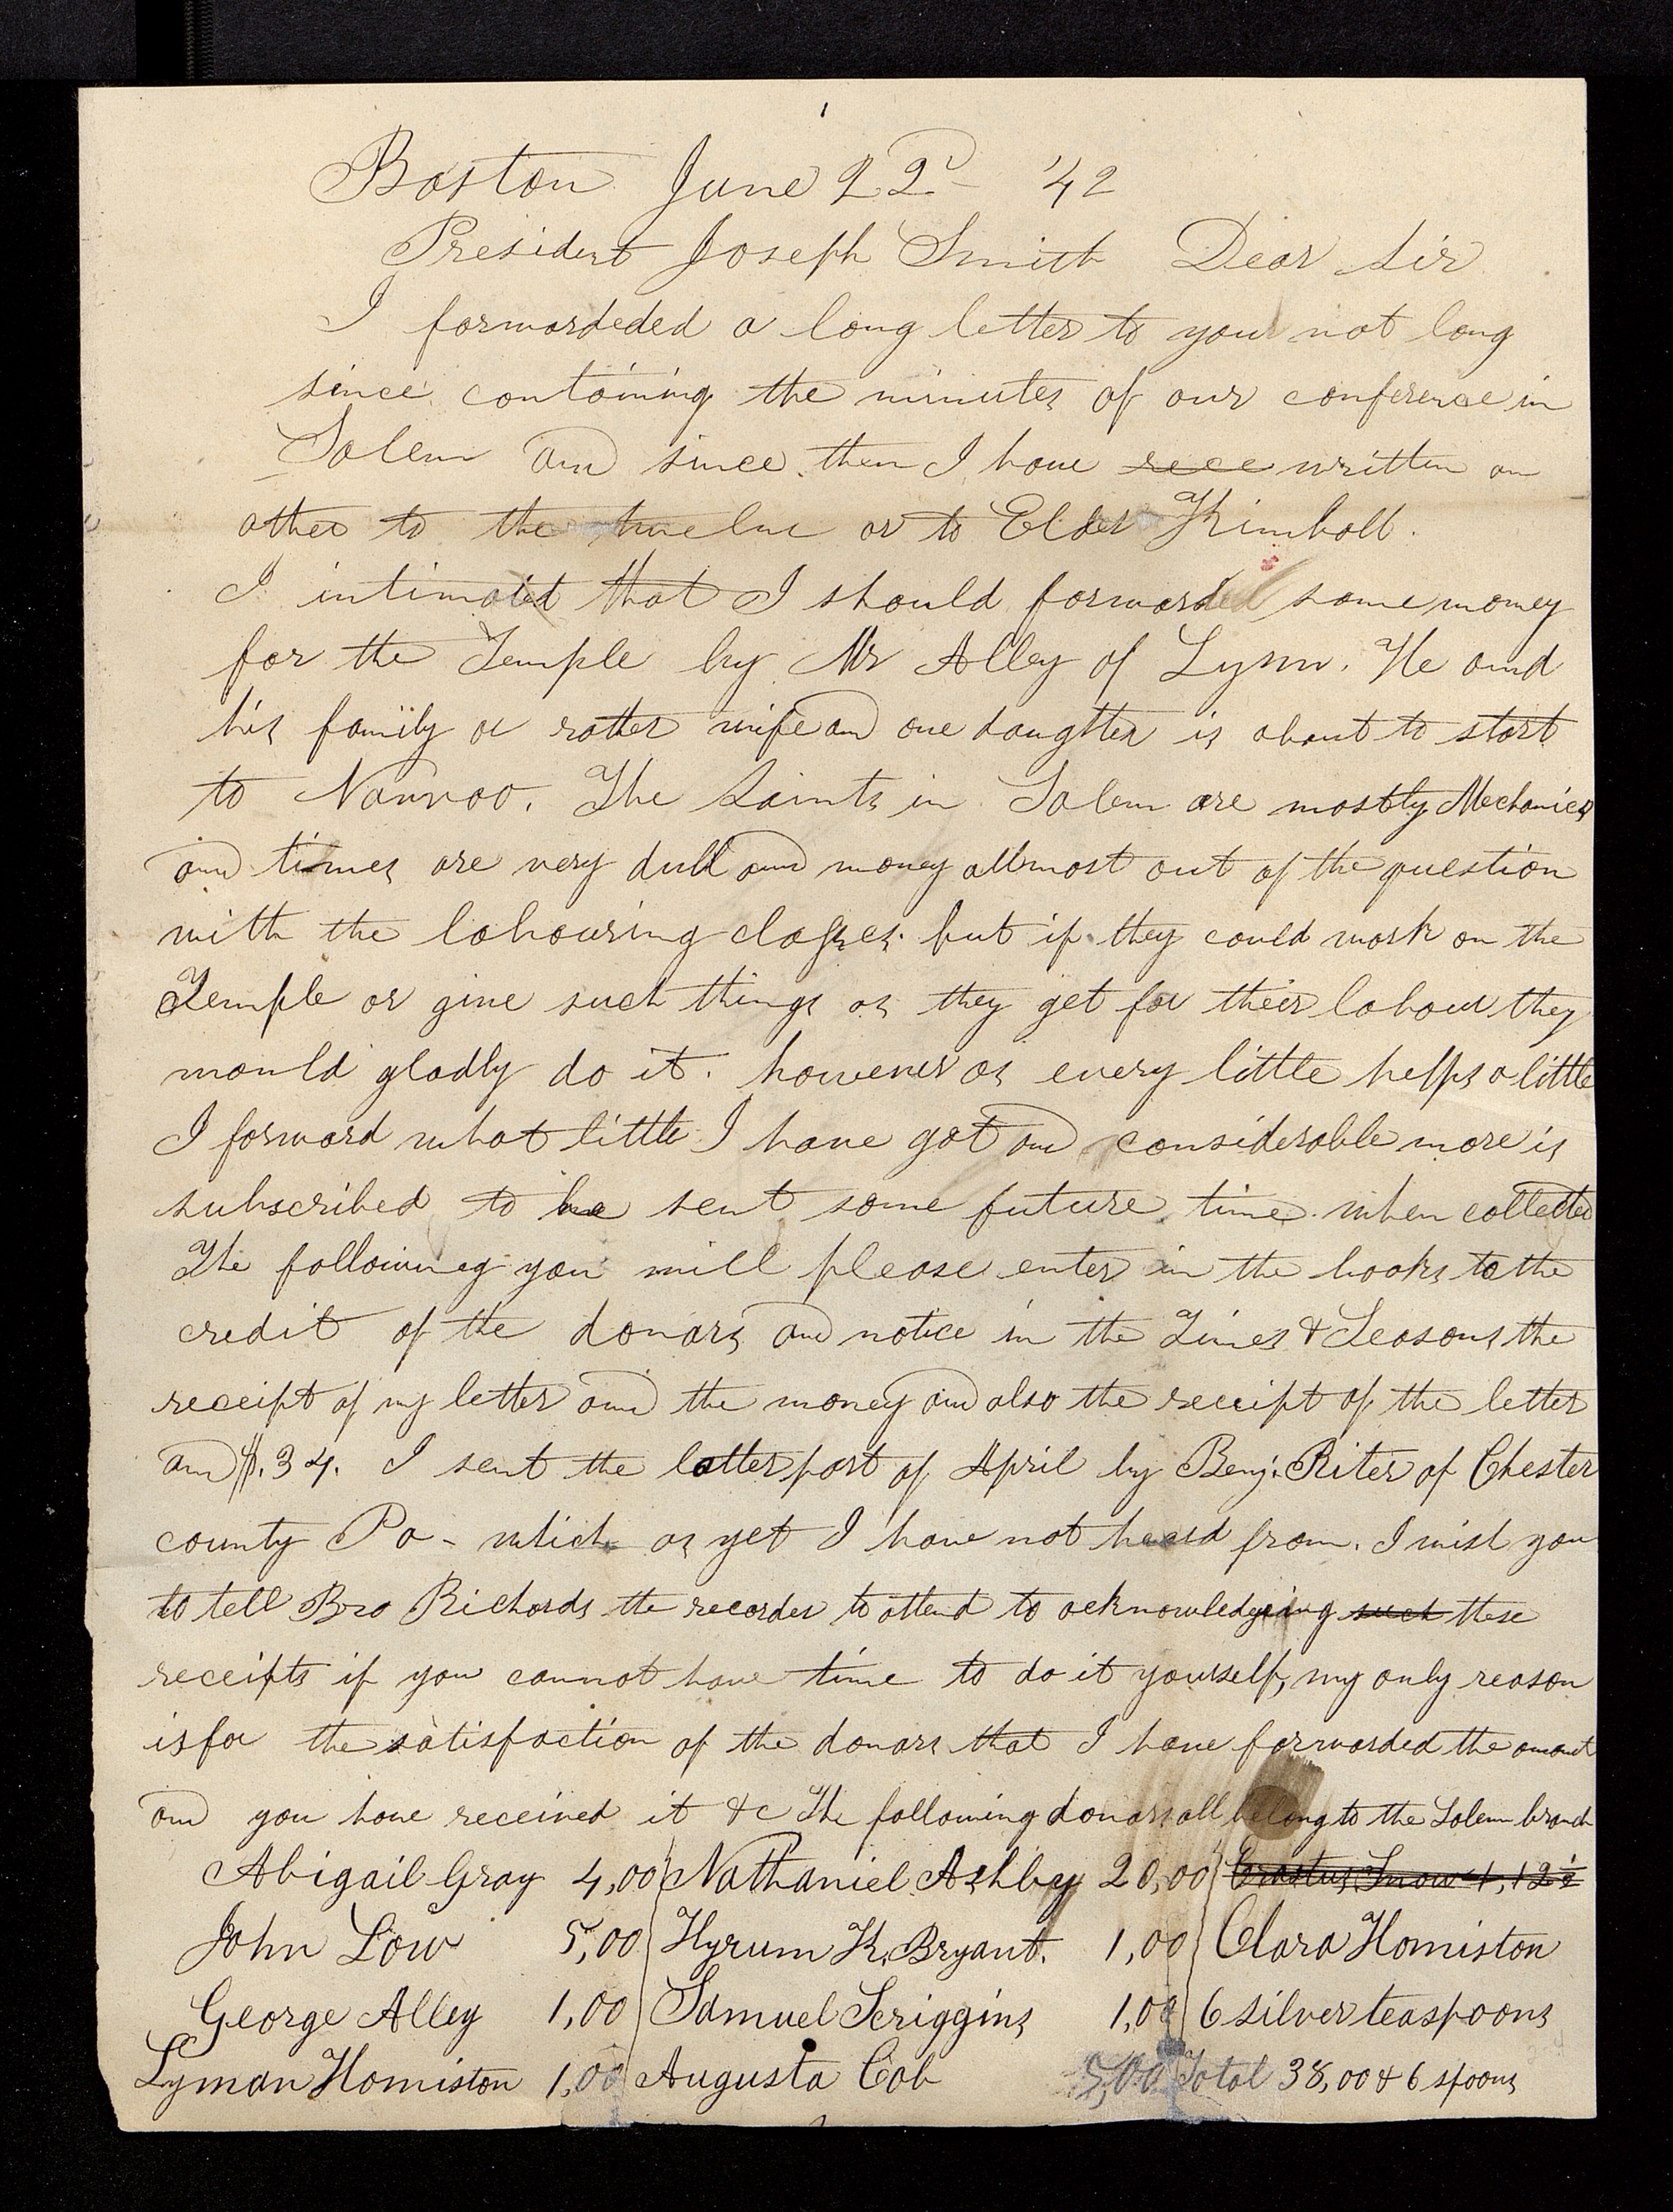 Boston June 22d '42
President Joseph Smith Dear Sir
I forwardeded a long letter to you not long
since containing the minutes of our conference in
Salem and since then I have rece written an
other to the twelve or to Elder Kimball.
I intimated that I should forward some money
for the Temple by Mr Alley of Lynn. He and
his family or rather wife and one daughter is about to start
to Nauvoo. The Saints in Salem are mostly Mechanics
and times are very dull and money allmost out of the question
with the labouring classes. but if they could work on the
Temple or give such things as they get for their labour they
would gladly do it. however as every little helps a little
I forward what little I have got and considerable more is
subscribed to be sent some future time when collected
The following you will please enter in the books to the
credit of the donars and notice in the Times & Seasons the
receipt of my letter and the money and also the receipt of the letter
and $.34. I sent the latter part of April by Benj. Riter of Chester
county Pa - which as yet I have not heard from. I wish you
to tell Bro Richards the recorder to attend to acknowledgeing such these
receipts if you cannot have time to do it yourself, my only reason
is for the satisfaction of the donars that I have forwarded the amount
and you have received it &c The following donars all belong to the Salem branch
Abigail Gray 4,00 Nathaniel Ashby 20,00 Erastus Snow 4,12½
John Low 5,00 Hyrum K. Bryant. 1,00 Clara Homiston
George Alley 1,00 Samuel Scriggins 1,00 6 silver teaspoons
Lyman Homiston 1,00 Augusta Cob 5,00 Total 38,00 & 6 spoons